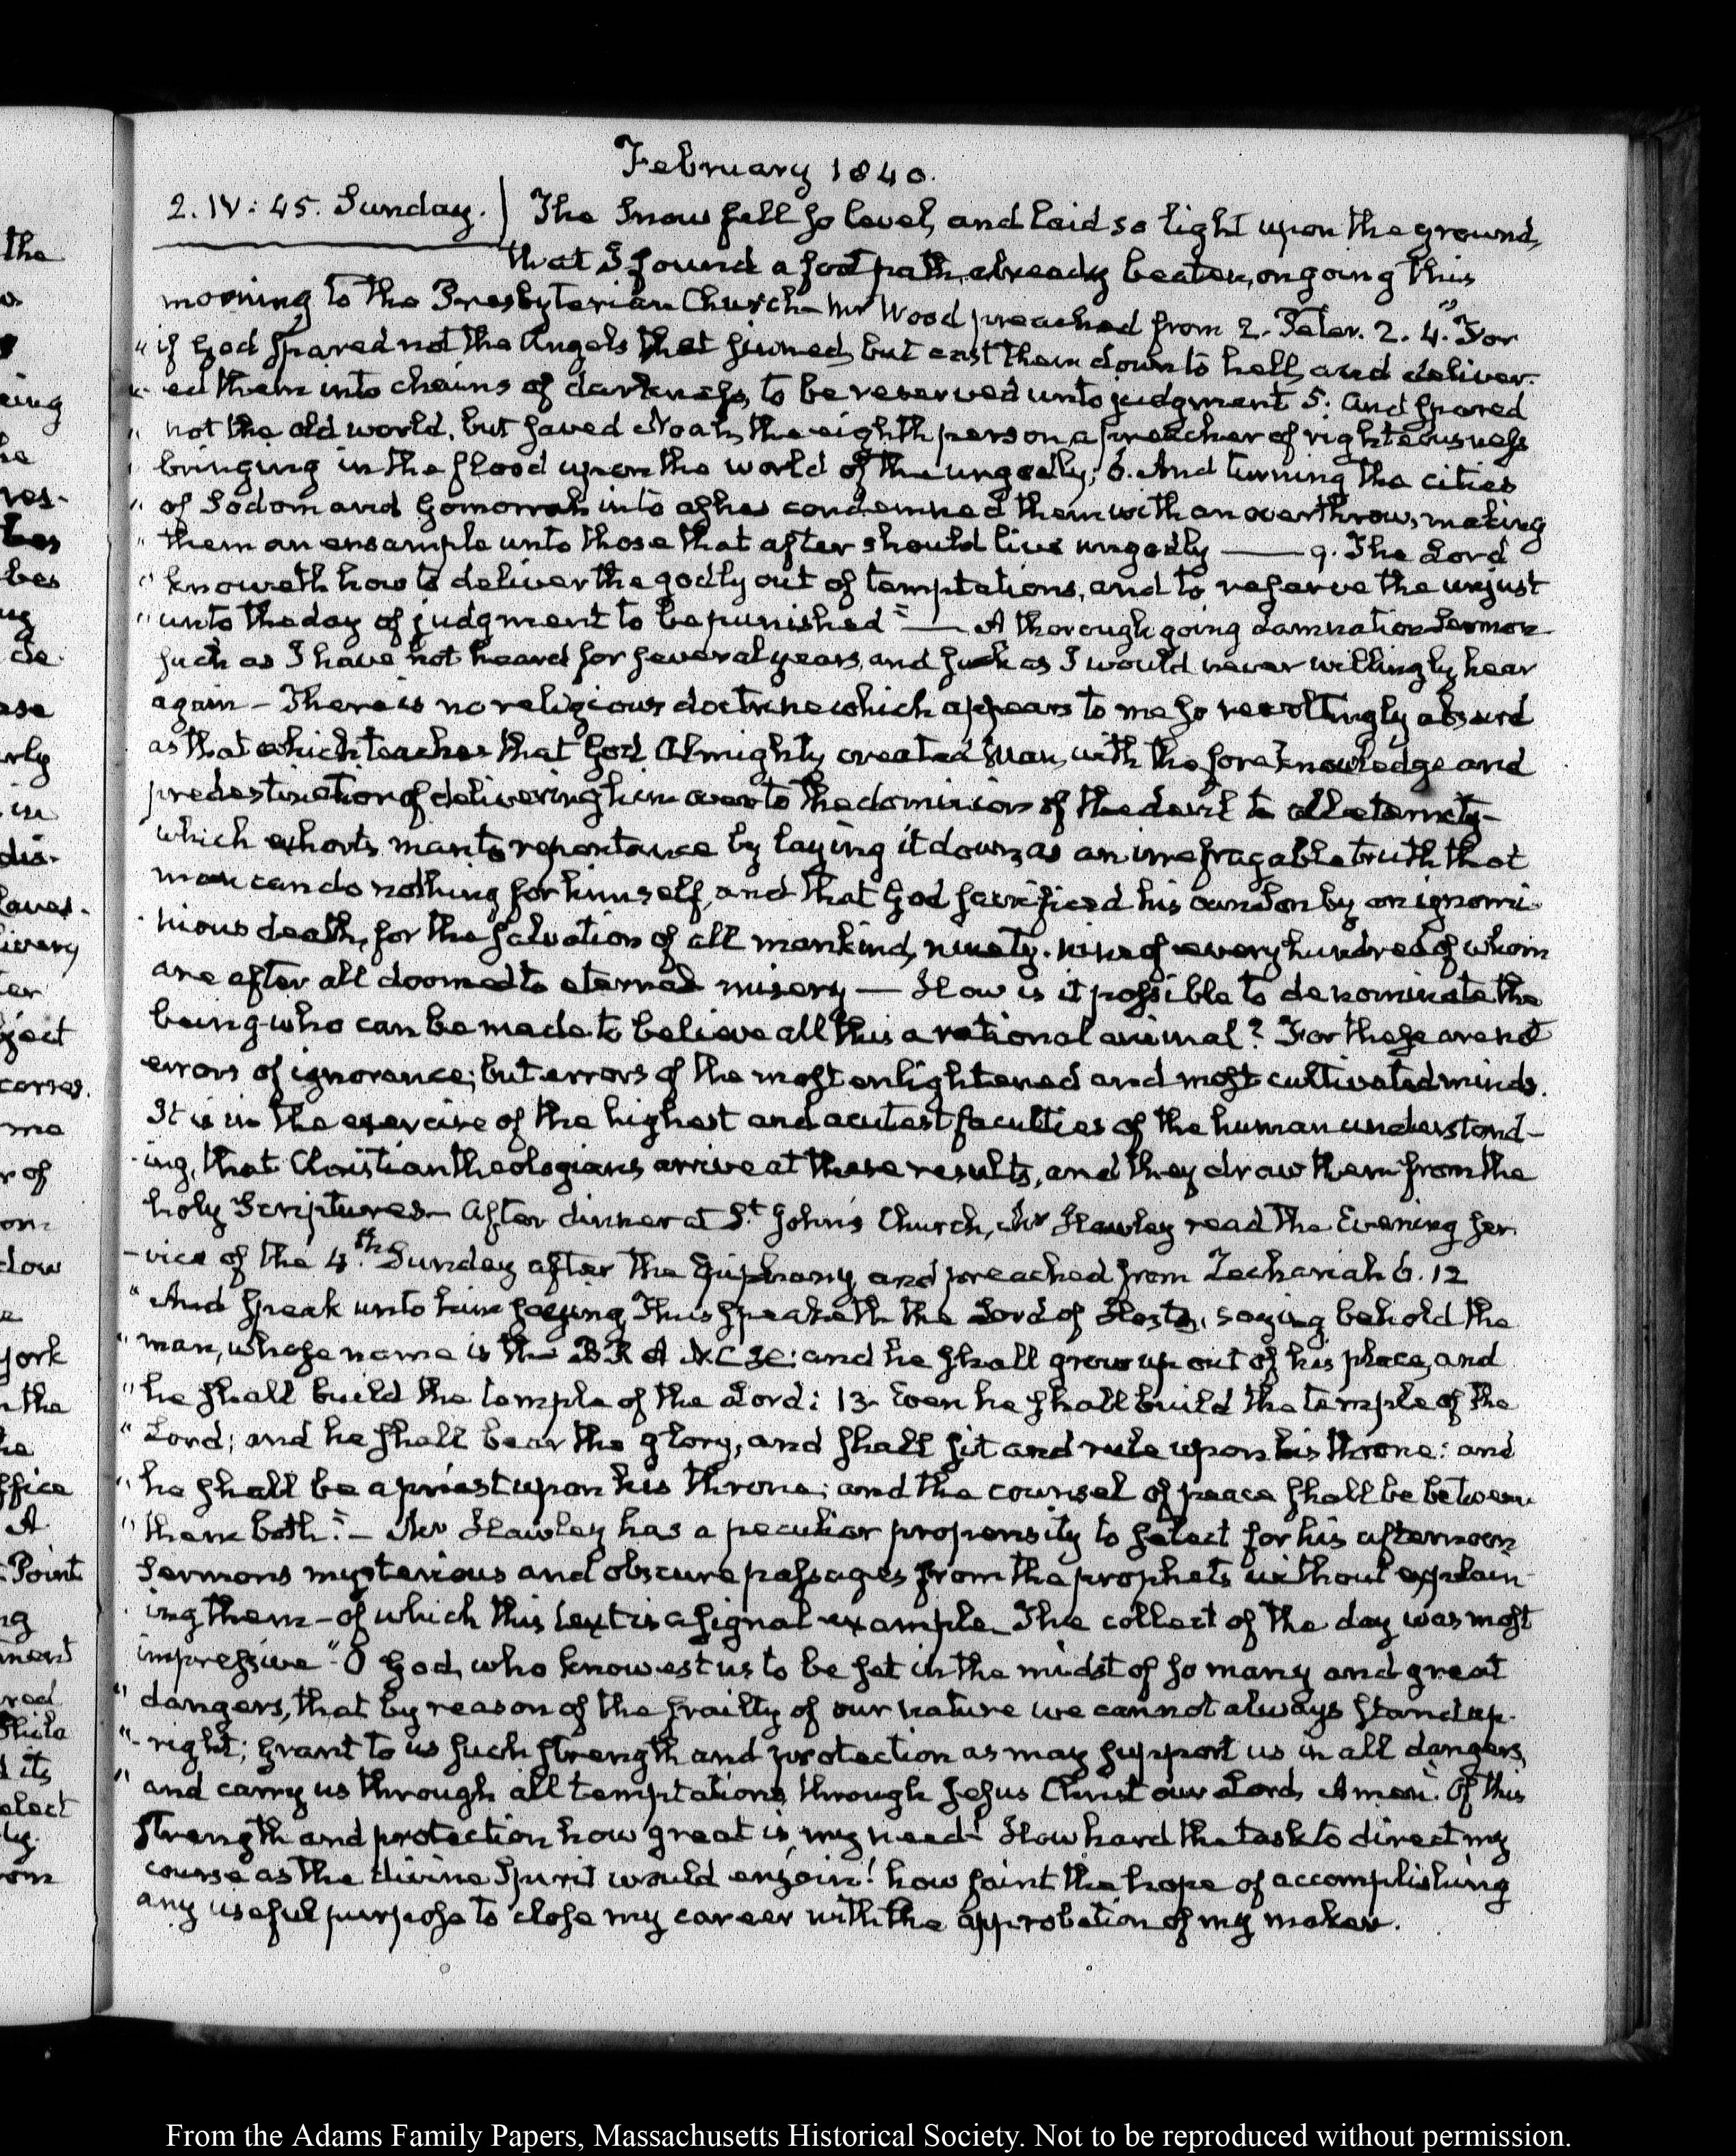 February 1840.
2. IV: 45. Sunday. The Snow fell so level, and laid so light upon the ground,
that I found a foot path already beaten, on going this
morning to the Presbyterian Church - Mr Wood preached from 2. Peter. 2. 4. "For
" if God spared not the Angels that sinned, but cast them down to hell, and deliver-
" ed them into chains of darkness, to be reserved unto judgment 5: And spared
" not the old world, but saved Noah, the eighth person, a preacher of righteousness
" bringing in the flood upon the world of the ungodly; 6. And turning the cities
" of Sodom and Gomorrah into ashes condemned them with an overthrow, making
" them an ensample unto those that after should live ungodly —— 9. The Lord
" knoweth how to deliver the godly out of temptations, and to reserve the unjust
" unto the day of judgment to be punished" —— A thorough going damnation Sermon
such as I have not heard for several years, and such as I would never willingly hear
again - There is no religious doctrine which appears to me so revoltingly absurd
as that which teaches that God Almighty created Man, with the foreknowledge and
predestination of delivering him over to the dominion of the devil to all eternity -
which exhorts man to repentance by laying it down, as an irrefragable truth that
man can do nothing for himself, and that God sacrificed his own Son by an ignomi-
nious death, for the salvation of all mankind, ninety-nine of every hundred of whom
are after all doomed to eternal misery — How is it possible to denominate the
being who can be made to believe all this a rational animal? For these are not
errors of ignorance; but errors of the most enlightened and most cultivated minds.
It is in the exercise of the highest and acutest faculties of the human understand-
ing, that Christian theologians arrive at these results, and they draw them from the
holy Scriptures - After dinner at St. John's Church, Mr Hawley read the Evening ser-
vice of the 4th. Sunday after the Epiphany, and preached from Zechariah 6. 12
" And speak unto him saying, Thus speaketh the Lord of Hosts, saying behold the
" man, whose name is the BRANCH: and he shall grow up out of his place, and
" he shall build the temple of the Lord: 13. Even he shall build the temple of the
" Lord; and he shall bear the glory, and shall sit and rule upon his throne: and
" he shall be a priest upon his throne; and the counsel of peace shall be between
" them both." - Mr Hawley has a peculiar propensity to select for his afternoon
Sermons mysterious and obscure passages from the prophets without explain-
ing them - of which this text is a signal example. The collect of the day was most
impressive "O God, who knowest us to be set in the midst of so many and great
" dangers, that by reason of the frailty of our nature we cannot always stand up-
" right; grant to us such strength and protection as may support us in all dangers,
" and carry us through all temptations, through Jesus Christ our Lord, Amen". Of this
strength and protection how great is my need! How hard the task to direct my
course as the divine Spirit would enjoin! how faint the hope of accomplishing
any useful purpose to close my career with the approbation of my maker.
From the Adams Family Papers, Massachusetts Historical Society. Not to be reproduced without permission.